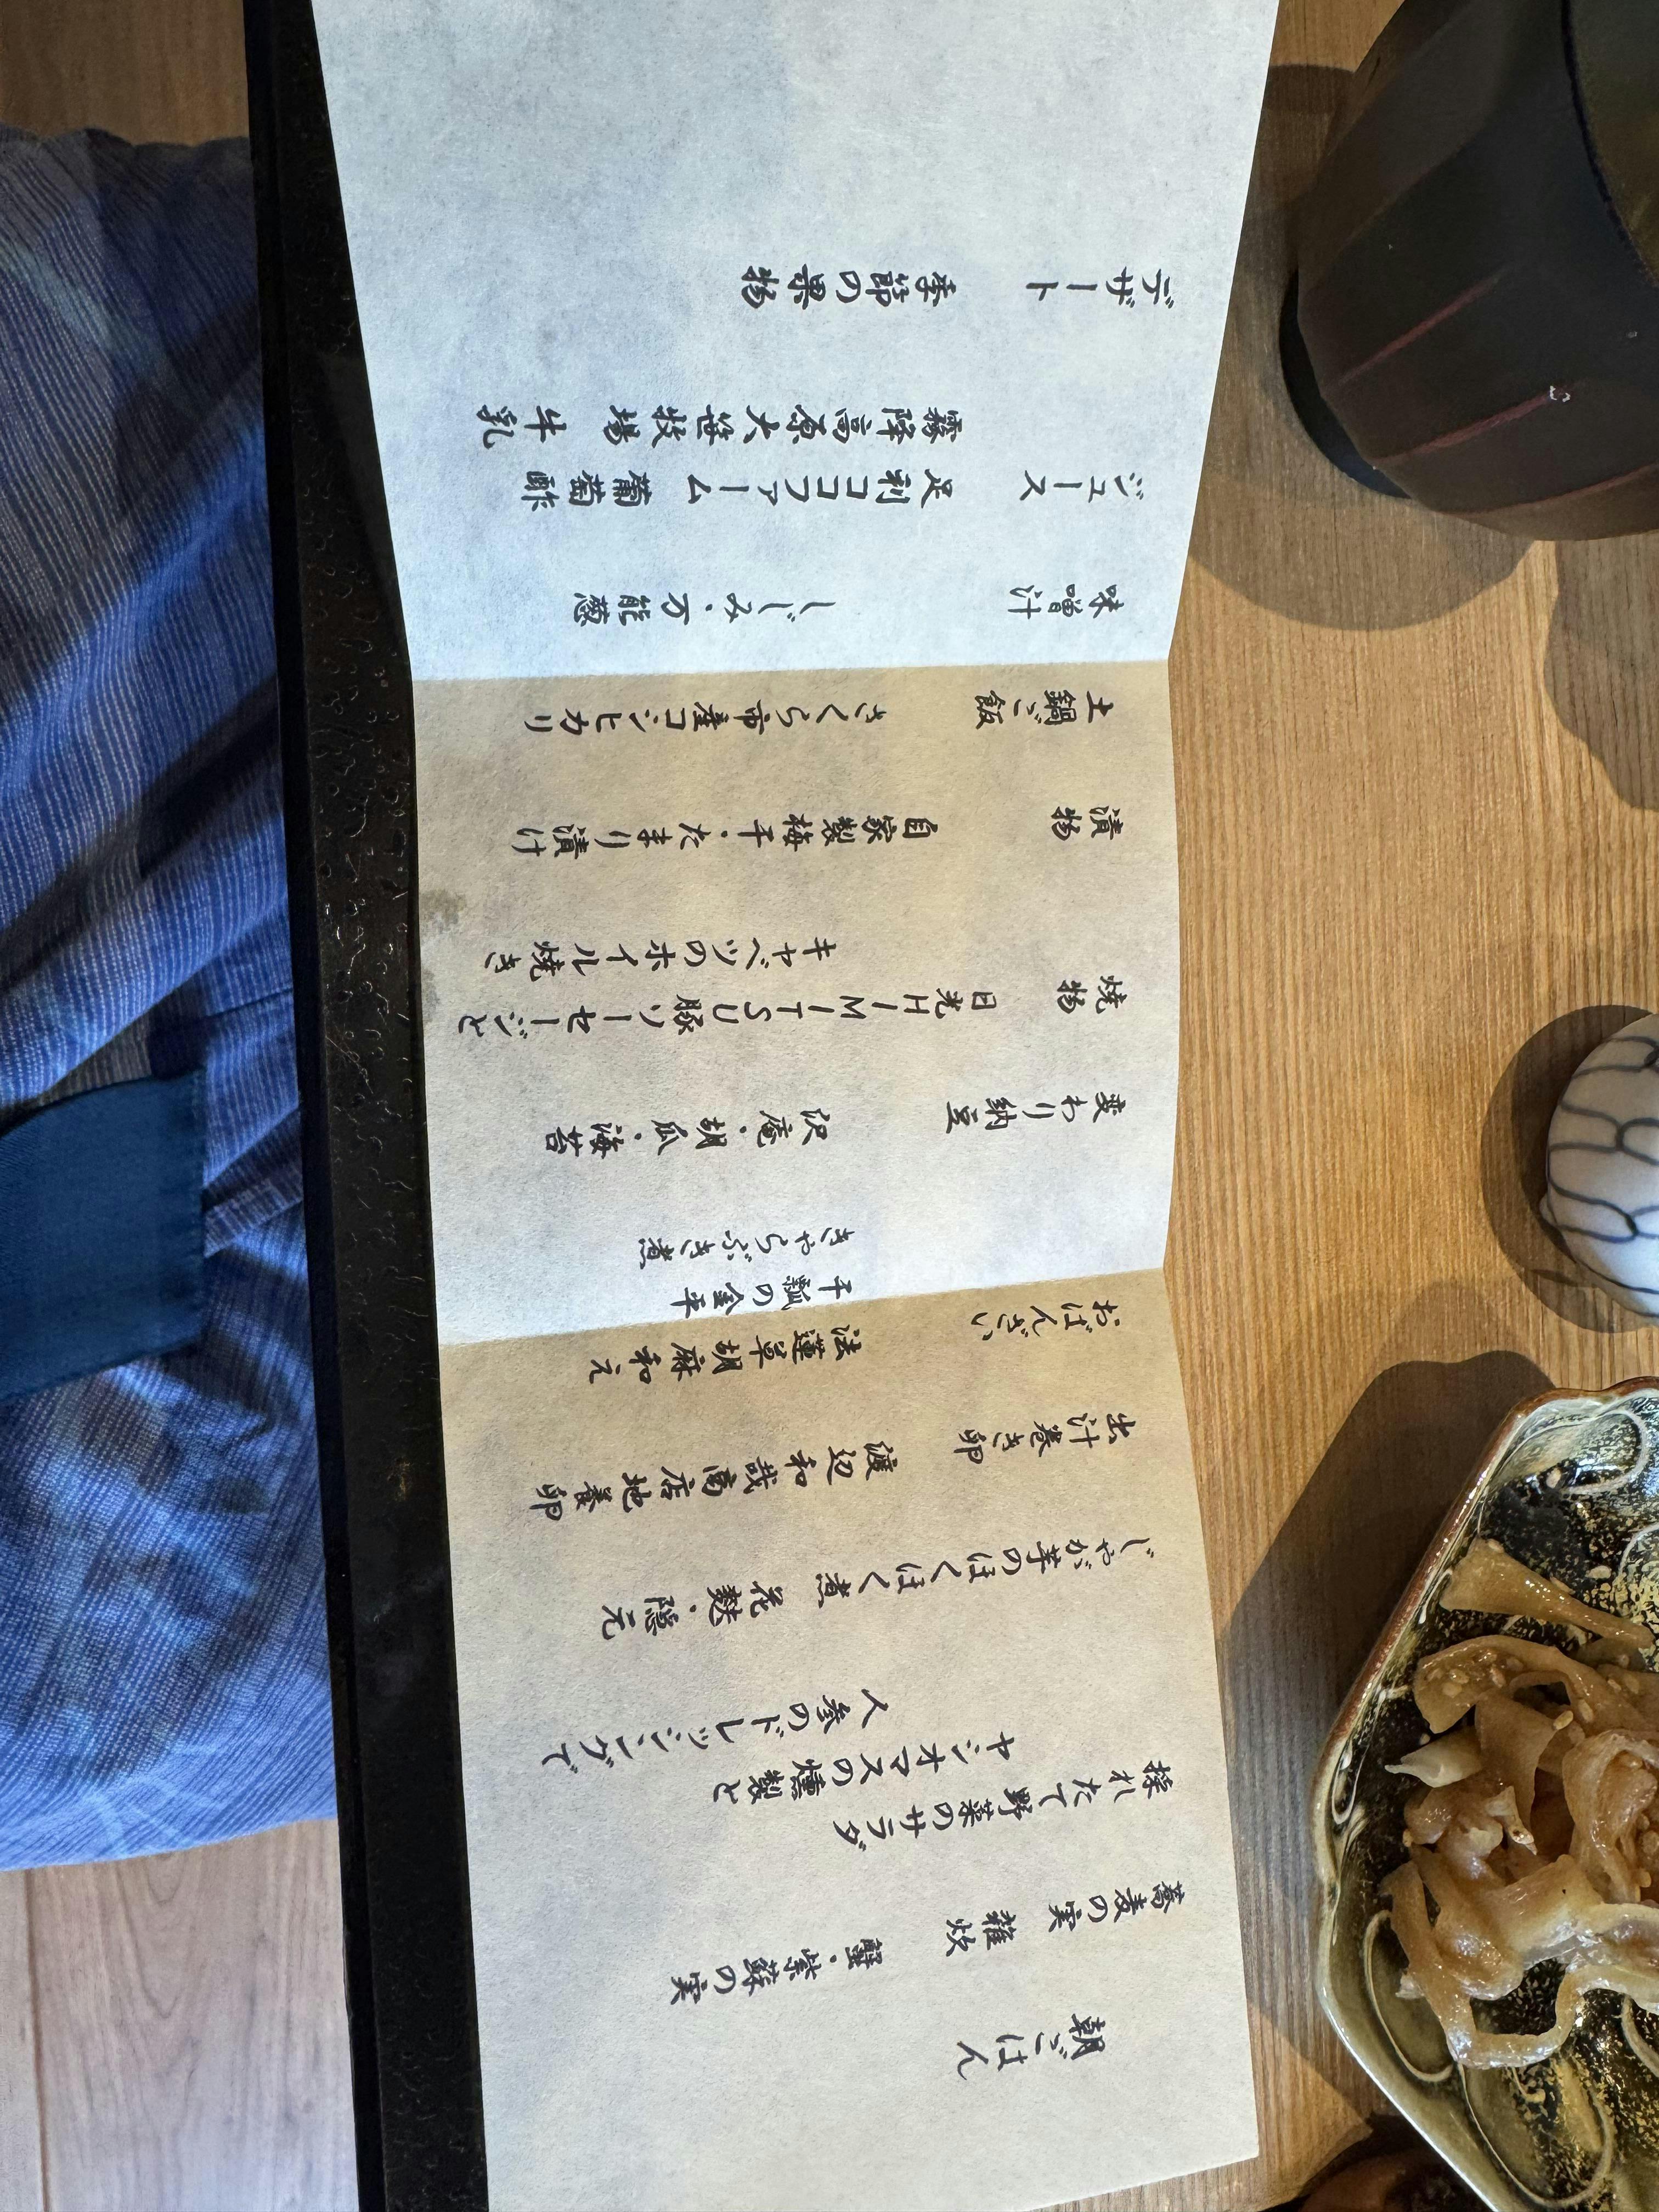 朝ごはん
蕎麦の実 雑炊
蟹・紫蘇の実
採れたて野菜のサラダ
ヤシオマスの燻製と
人参のドレッシングで
じゃが芋のほくほく煮 花麩・隠元
出汁巻き卵
渡辺和哉商店地養卵
おばんざい
法蓮草胡麻和え
干瓢の金平
きゃらぶき煮
変わり納豆
沢庵・胡瓜・海苔
焼物
日光HIMITSU豚ソーセージと
キャベツのホイル焼き
漬物
自家製梅干・たまり漬け
土鍋ご飯
さくら市産コシヒカリ
味噌汁
しじみ・万能葱
ジュース
足利ココファーム 葡萄酢
霧降高原大笹牧場 牛乳
デザート
季節の果物